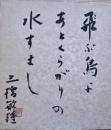 飛ぶ鳥よ
あとくらがりの
水すまし
三橋敏雄